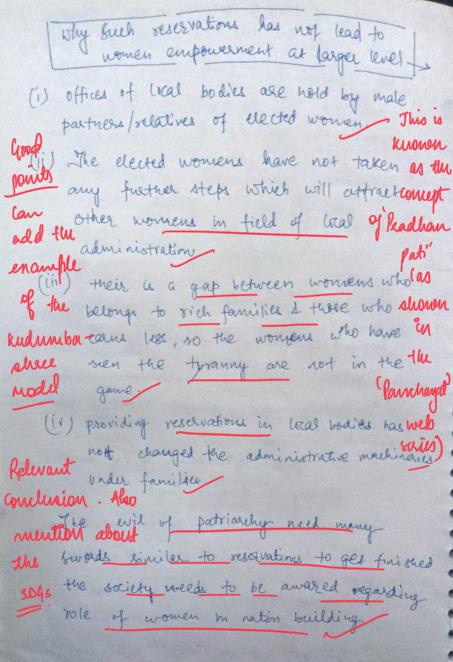 Why Such reservations has not lead to
women empowerment at larger level
(i) offices of local bodies are hold by male
partners/relatives of elected women
(ii) The elected womens have not taken
any further steps which will attract
other womens in field of local
administration
(iii) their is a gap between womens who
belongs to rich families & those who
earns less, so the womens who have
seen the tyranny are not in the
game.
(iv) providing reservations in local bodies has
not changed the administrative machineries
under families
The evil of patriarchy need many
swords similar to reservations to get finished
the society needs to be awared regarding
role of women in nation building.
Good
points
Can
add the
example
of the
kudumba-
shree
model
This is
known
as the
concept
of 'Pradhan
pati'
(as
shown
in
the
'Panchayat'
web
series)
Relevant
conclusion. Also
mention about
the
SDGs